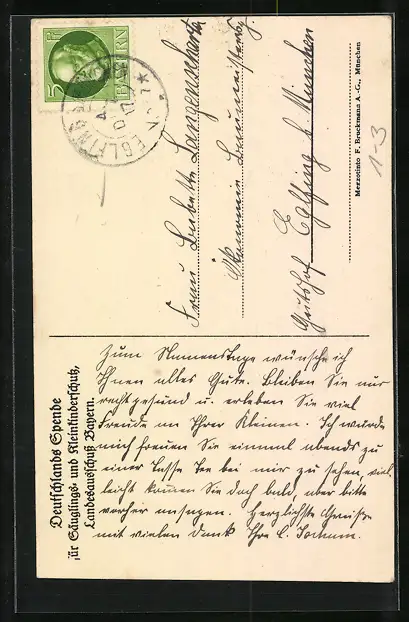 5 PF
BAYERN
EGLFING
Deutschlands Spende
für Säuglings- und Kleinkinderschutz,
Landesausschuß Bayern.
Frau Babette Langenscheidt
Gutshof Eglfing b. München
Mezzotinto F. Bruckmann A.-G., München
1-3
Zum Namenstage wünsche ich
Ihnen alles Gute. Bleiben Sie nur
recht gesund u. erleben Sie viel
Freude an Ihrer Kleinen. Ich würde
mich freuen Sie einmal abends zu
einer Tasse Tee bei mir zu sehen, viel-
leicht kommen Sie doch bald, aber bitte
vorher ansagen. Herzlichste Grüße
mit vielem Dank Ihre C. Jochum.